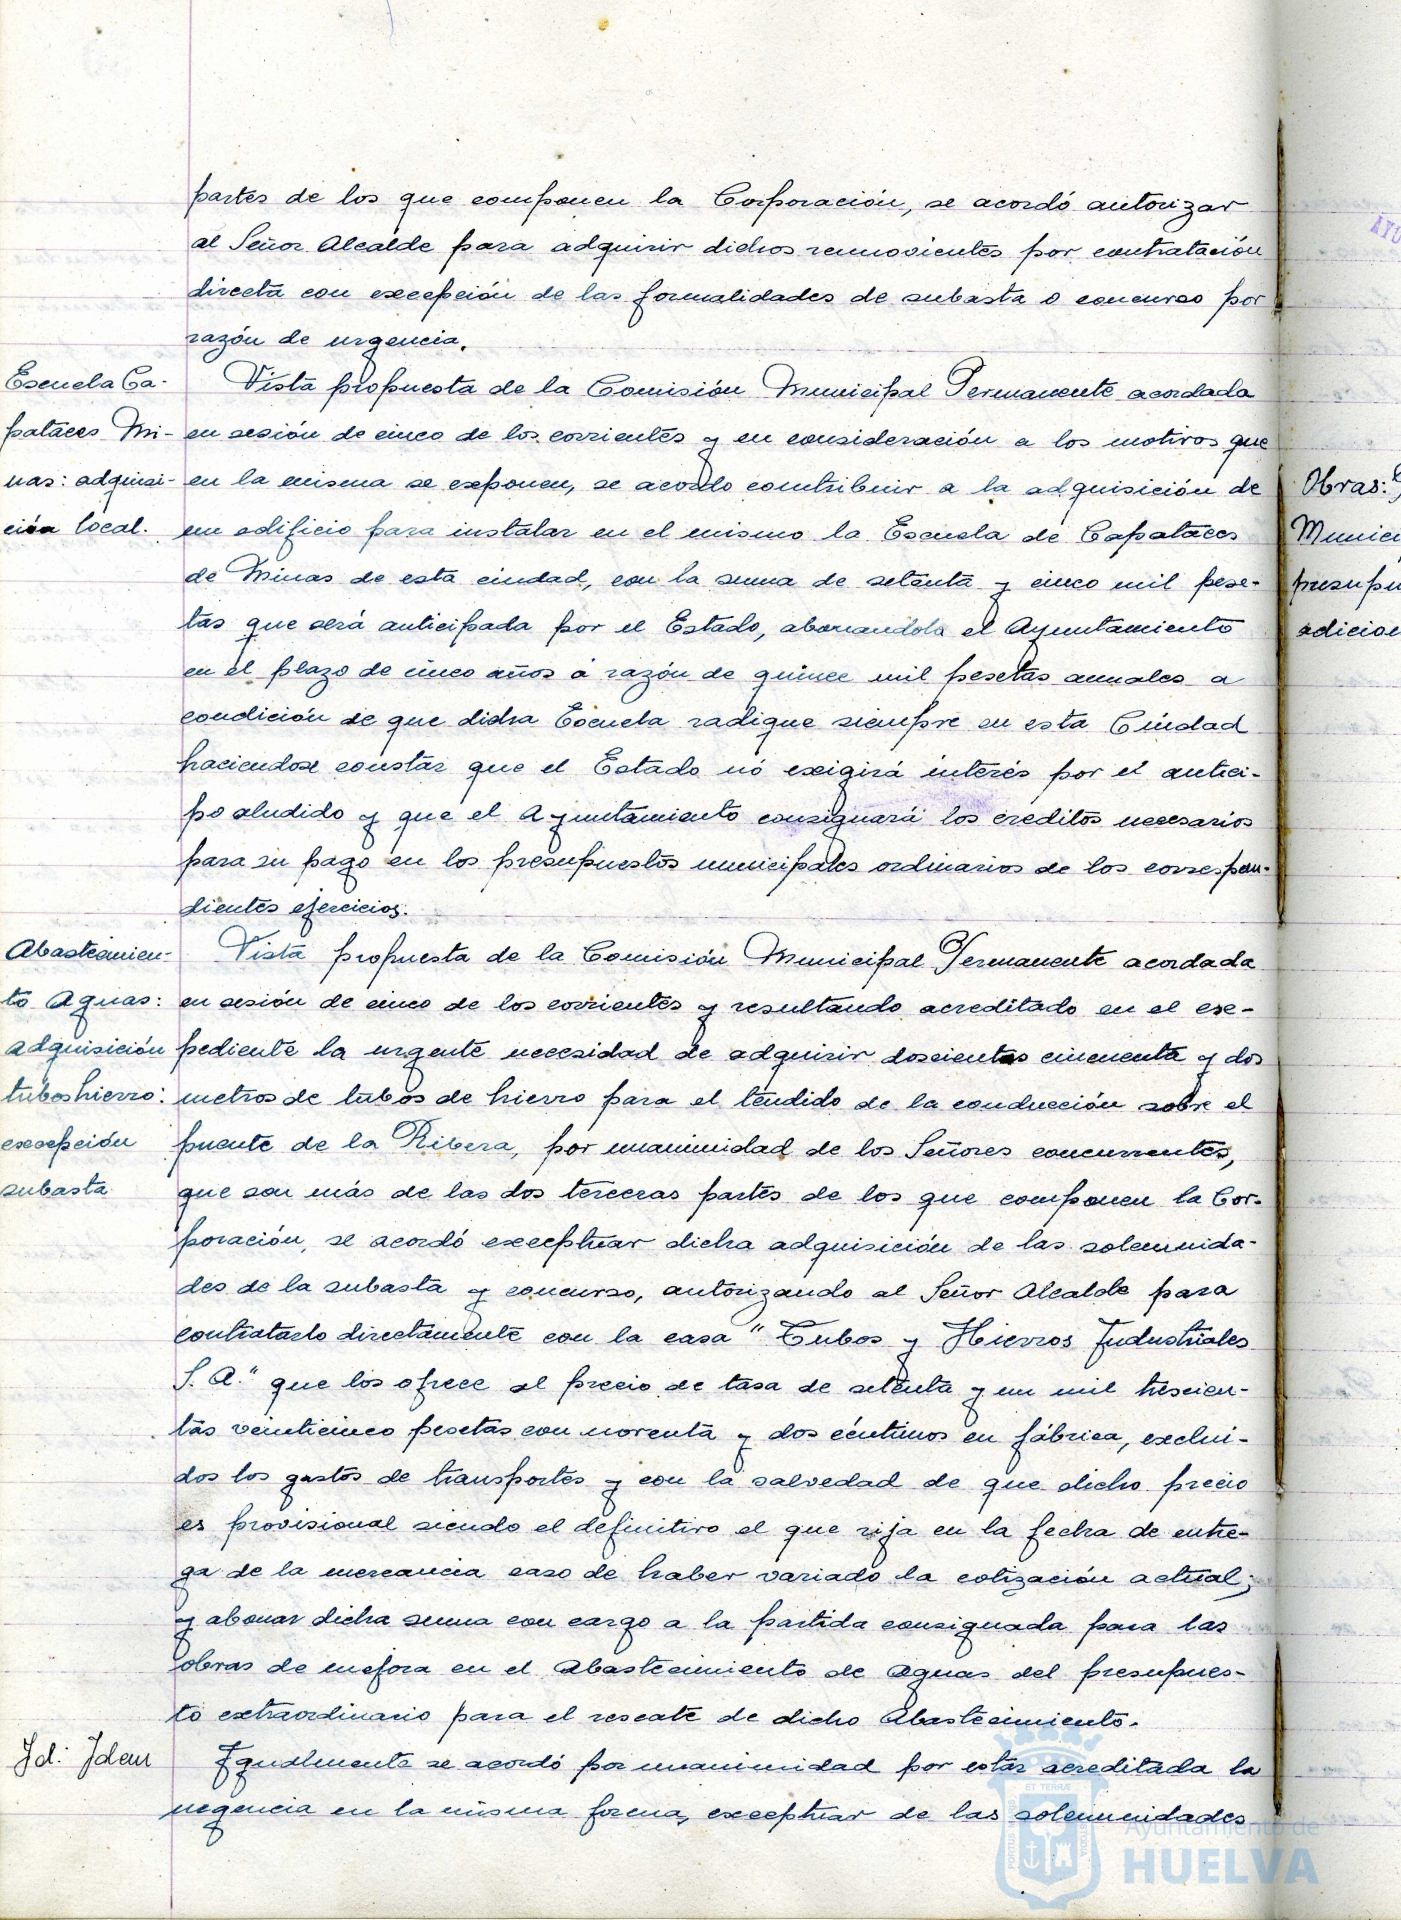 partes de los que componen la Corporación, se acordó autorizar
al Señor Alcalde para adquirir dichos semovientes por contratación
directa con excepción de las formalidades de subasta o concurso por
razón de urgencia.
Escuela Ca-
pataces Mi-
nas: adquisi-
ción local.
Vista propuesta de la Comisión Municipal Permanente acordada
en sesión de cinco de los corrientes y en consideración a los motivos que
en la misma se exponen, se acordo contribuir a la adquisición de
un edificio para instalar en el mismo la Escuela de Capataces
de Minas de esta ciudad, con la suma de setenta y cinco mil pese-
tas que será anticipada por el Estado, abonandola el Ayuntamiento
en el plazo de cinco años á razón de quince mil pesetas anuales a
condición de que dicha Escuela radique siempre en esta Ciudad
haciendose constar que el Estado nó exigirá interés por el antici-
po aludido y que el Ayuntamiento consignará los creditos necesarios
para su pago en los presupuestos municipales ordinarios de los correspon-
dientes ejercicios.
Abastecimien-
to Aguas:
adquisición
tubos hierro:
excepción
subasta
Vista propuesta de la Comisión Municipal Permanente acordada
en sesión de cinco de los corrientes y resultando acreditado en el exe-
pediente la urgente necesidad de adquirir doscientos cincuenta y dos
metros de tubos de hierro para el tendido de la conducción sobre el
puente de la Ribera, por unanimidad de los Señores concurrentes,
que son más de las dos terceras partes de los que componen la Cor-
poración, se acordó exceptuar dicha adquisición de las solemnida-
des de la subasta y concurso, autorizando al Señor Alcalde para
contratarlo directamente con la casa "Tubos y Hierros Industriales
S.A." que los ofrece al precio de tasa de setenta y un mil trescien-
tas veinticinco pesetas con noventa y dos céntimos en fábrica, exclui-
dos los gastos de transportes y con la salvedad de que dicho precio
es provisional siendo el definitivo el que rija en la fecha de entre-
ga de la mercancia caso de haber variado la cotización actual;
y abonar dicha suma con cargo a la partida consignada para las
obras de mejora en el Abastecimiento de Aguas del presupues-
to extraordinario para el rescate de dicho Abastecimiento.
Id: Idem
Igualmente se acordó por unanimidad por estar acreditada la
urgencia en la misma forma, exceptuar de las solemnidades
Obras:
Munici
presupu
adicion
AYU
ET TERRÆ
PORTUS MARIS
CUSTODIA
Ayuntamiento de
HUELVA